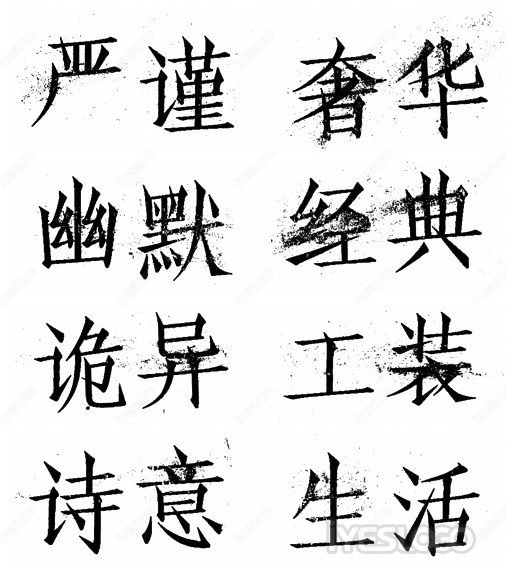 严谨 奢华
幽默 经典
诡异 工装
诗意 生活
IYESLOGO